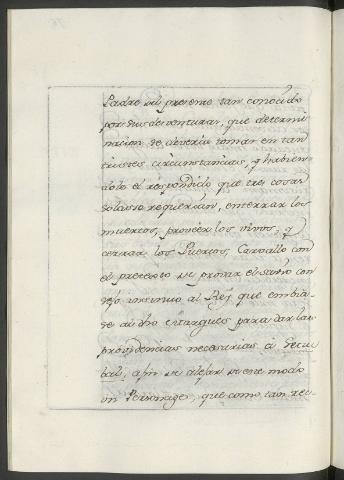 Padre del presente tan conocido
por sus desventuras, que determi
nacion se deveria tomar en tan
tristes circunstancias, y habien
dole él respondido que tres cosas
solas se requerian, enterrar los
muertos, proveer los vivos, y
cerrar los Puertos, Carvallo con
el pretexto de probar el sabio con
sejo insinuó al Rey que embia-
se al dho Marques para dar las
providencias necesarias á Setu
bal, afin de alejar de este modo
un Personage, que como tan rec-